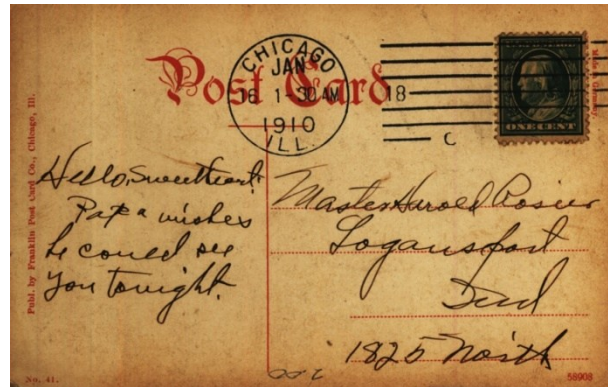 Post Card
CHICAGO
JAN
16 1-30AM
1910
ILL.
18
C
ONE CENT
Publ. by Franklin Post Card Co., Chicago, Ill.
Hello, Sweetheart.
Papa wishes
he could see
you tonight.
Master Harold Rosier
Logansport
Ind
1825 North
No. 41.
58908